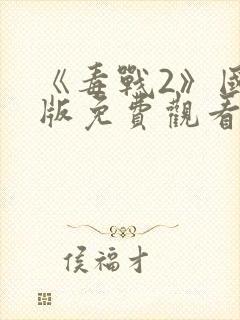 《毒戰2》國
版免費觀看
侯福才